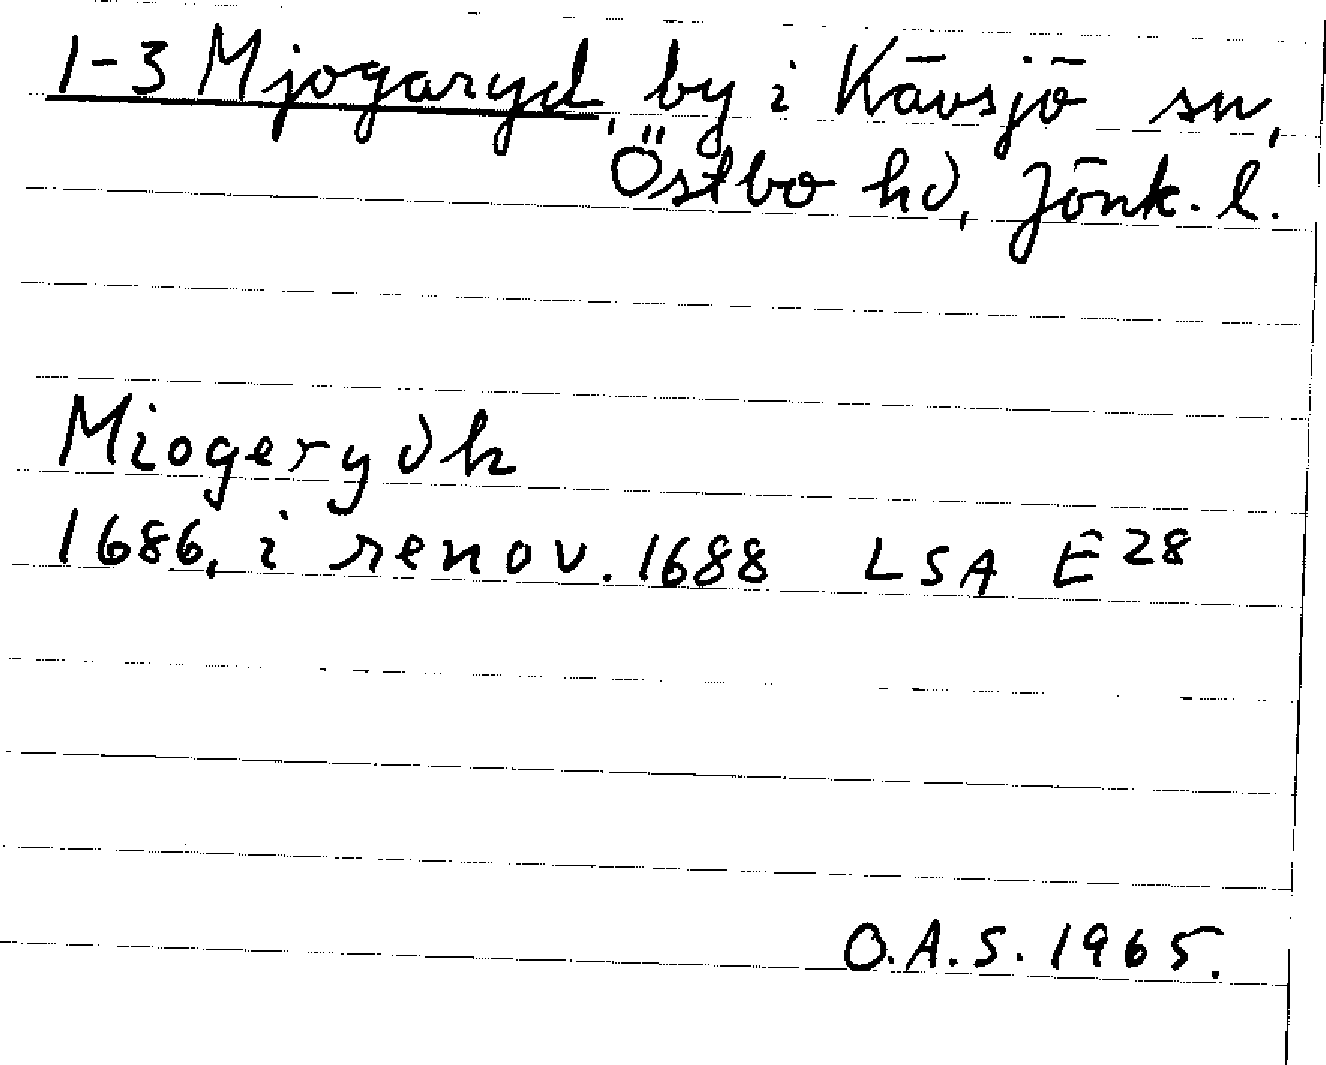 1-3 Mjogaryd, by i Kävsjö sn,
Östbo hd, Jönk. l.
Miogerydh
1686, i renov. 1688 LSA E 28
O.A.S. 1965.